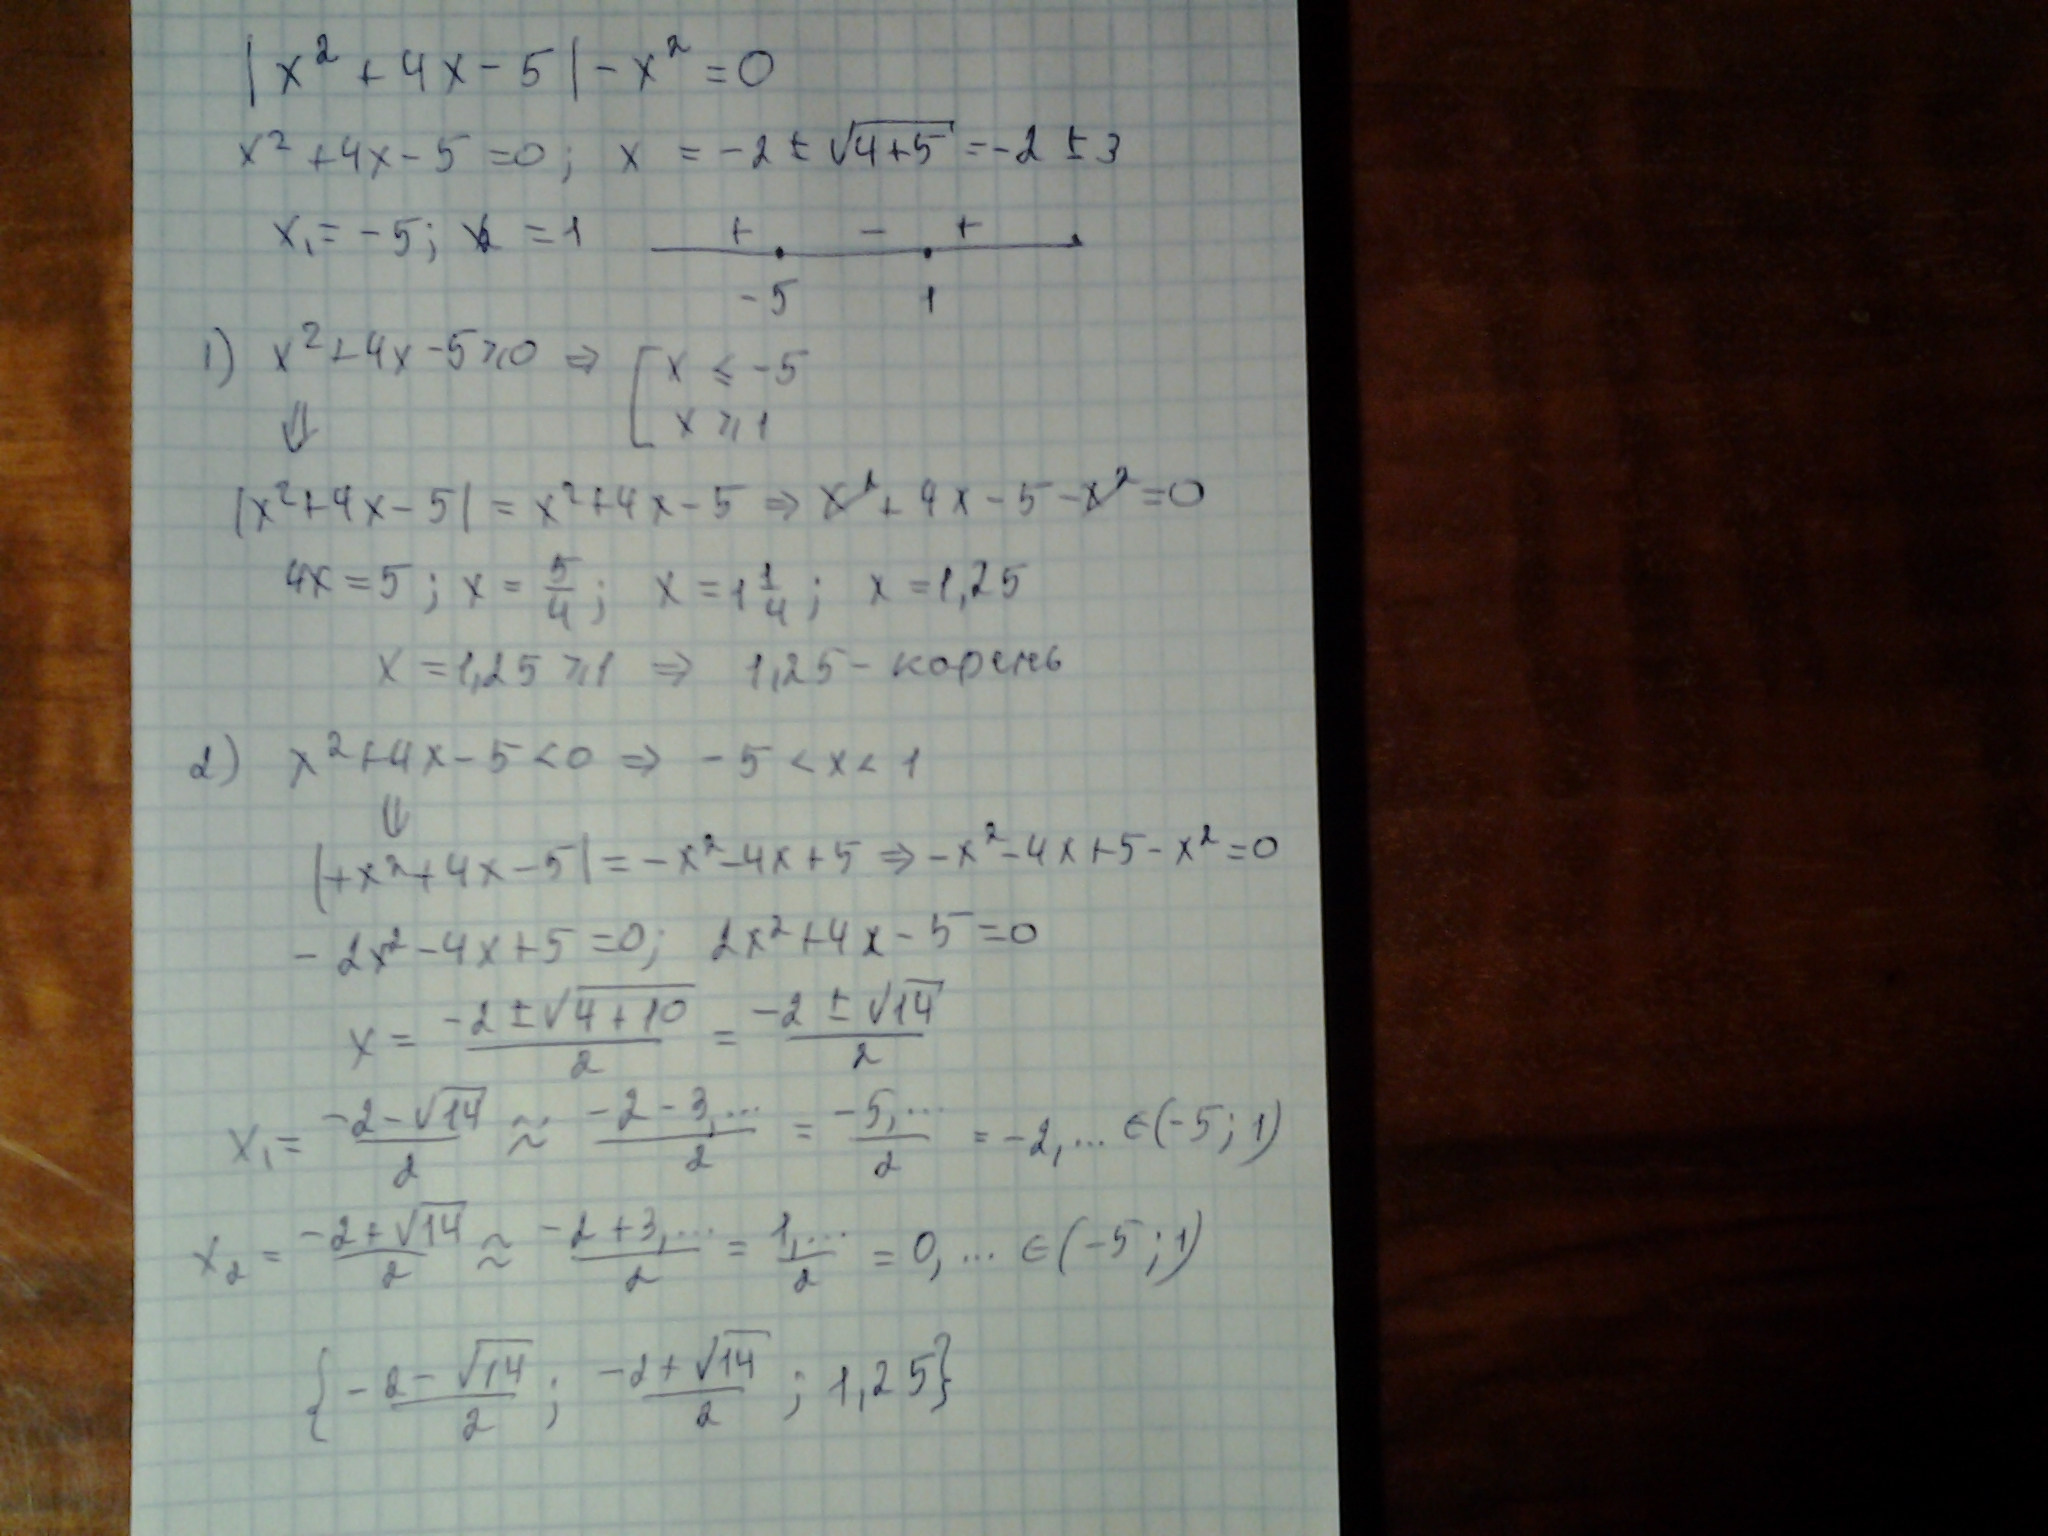 |x² + 4x - 5| - x² = 0
x² + 4x - 5 = 0; x = -2 ± √(4+5) = -2 ± 3
x₁ = -5; x₂ = 1 + - +
-5 1
1) x² + 4x - 5 ⩾ 0 ⇒ [ x ⩽ -5
⇓ x ⩾ 1
|x² + 4x - 5| = x² + 4x - 5 ⇒ x² + 4x - 5 - x² = 0
4x = 5; x = 5/4; x = 1 1/4; x = 1,25
x = 1,25 ⩾ 1 ⇒ 1,25 - корень
2) x² + 4x - 5 < 0 ⇒ -5 < x < 1
⇓
|+x² + 4x - 5| = -x² - 4x + 5 ⇒ -x² - 4x + 5 - x² = 0
-2x² - 4x + 5 = 0; 2x² + 4x - 5 = 0
x = (-2 ± √(4+10))/2 = (-2 ± √14)/2
x₁ = (-2 - √14)/2 ≈ (-2 - 3,...)/2 = (-5,...)/2 = -2,... ∈ (-5; 1)
x₂ = (-2 + √14)/2 ≈ (-2 + 3,...)/2 = (1,...)/2 = 0,... ∈ (-5; 1)
{(-2 - √14)/2; (-2 + √14)/2; 1,25}